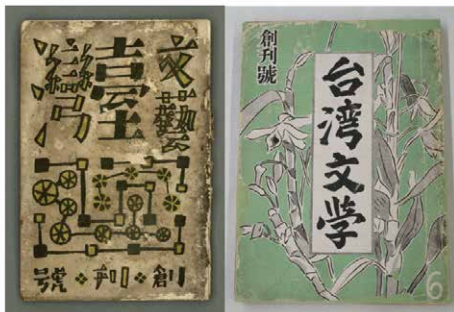 文藝
臺灣
創刊號
創刊號
台湾文学
6